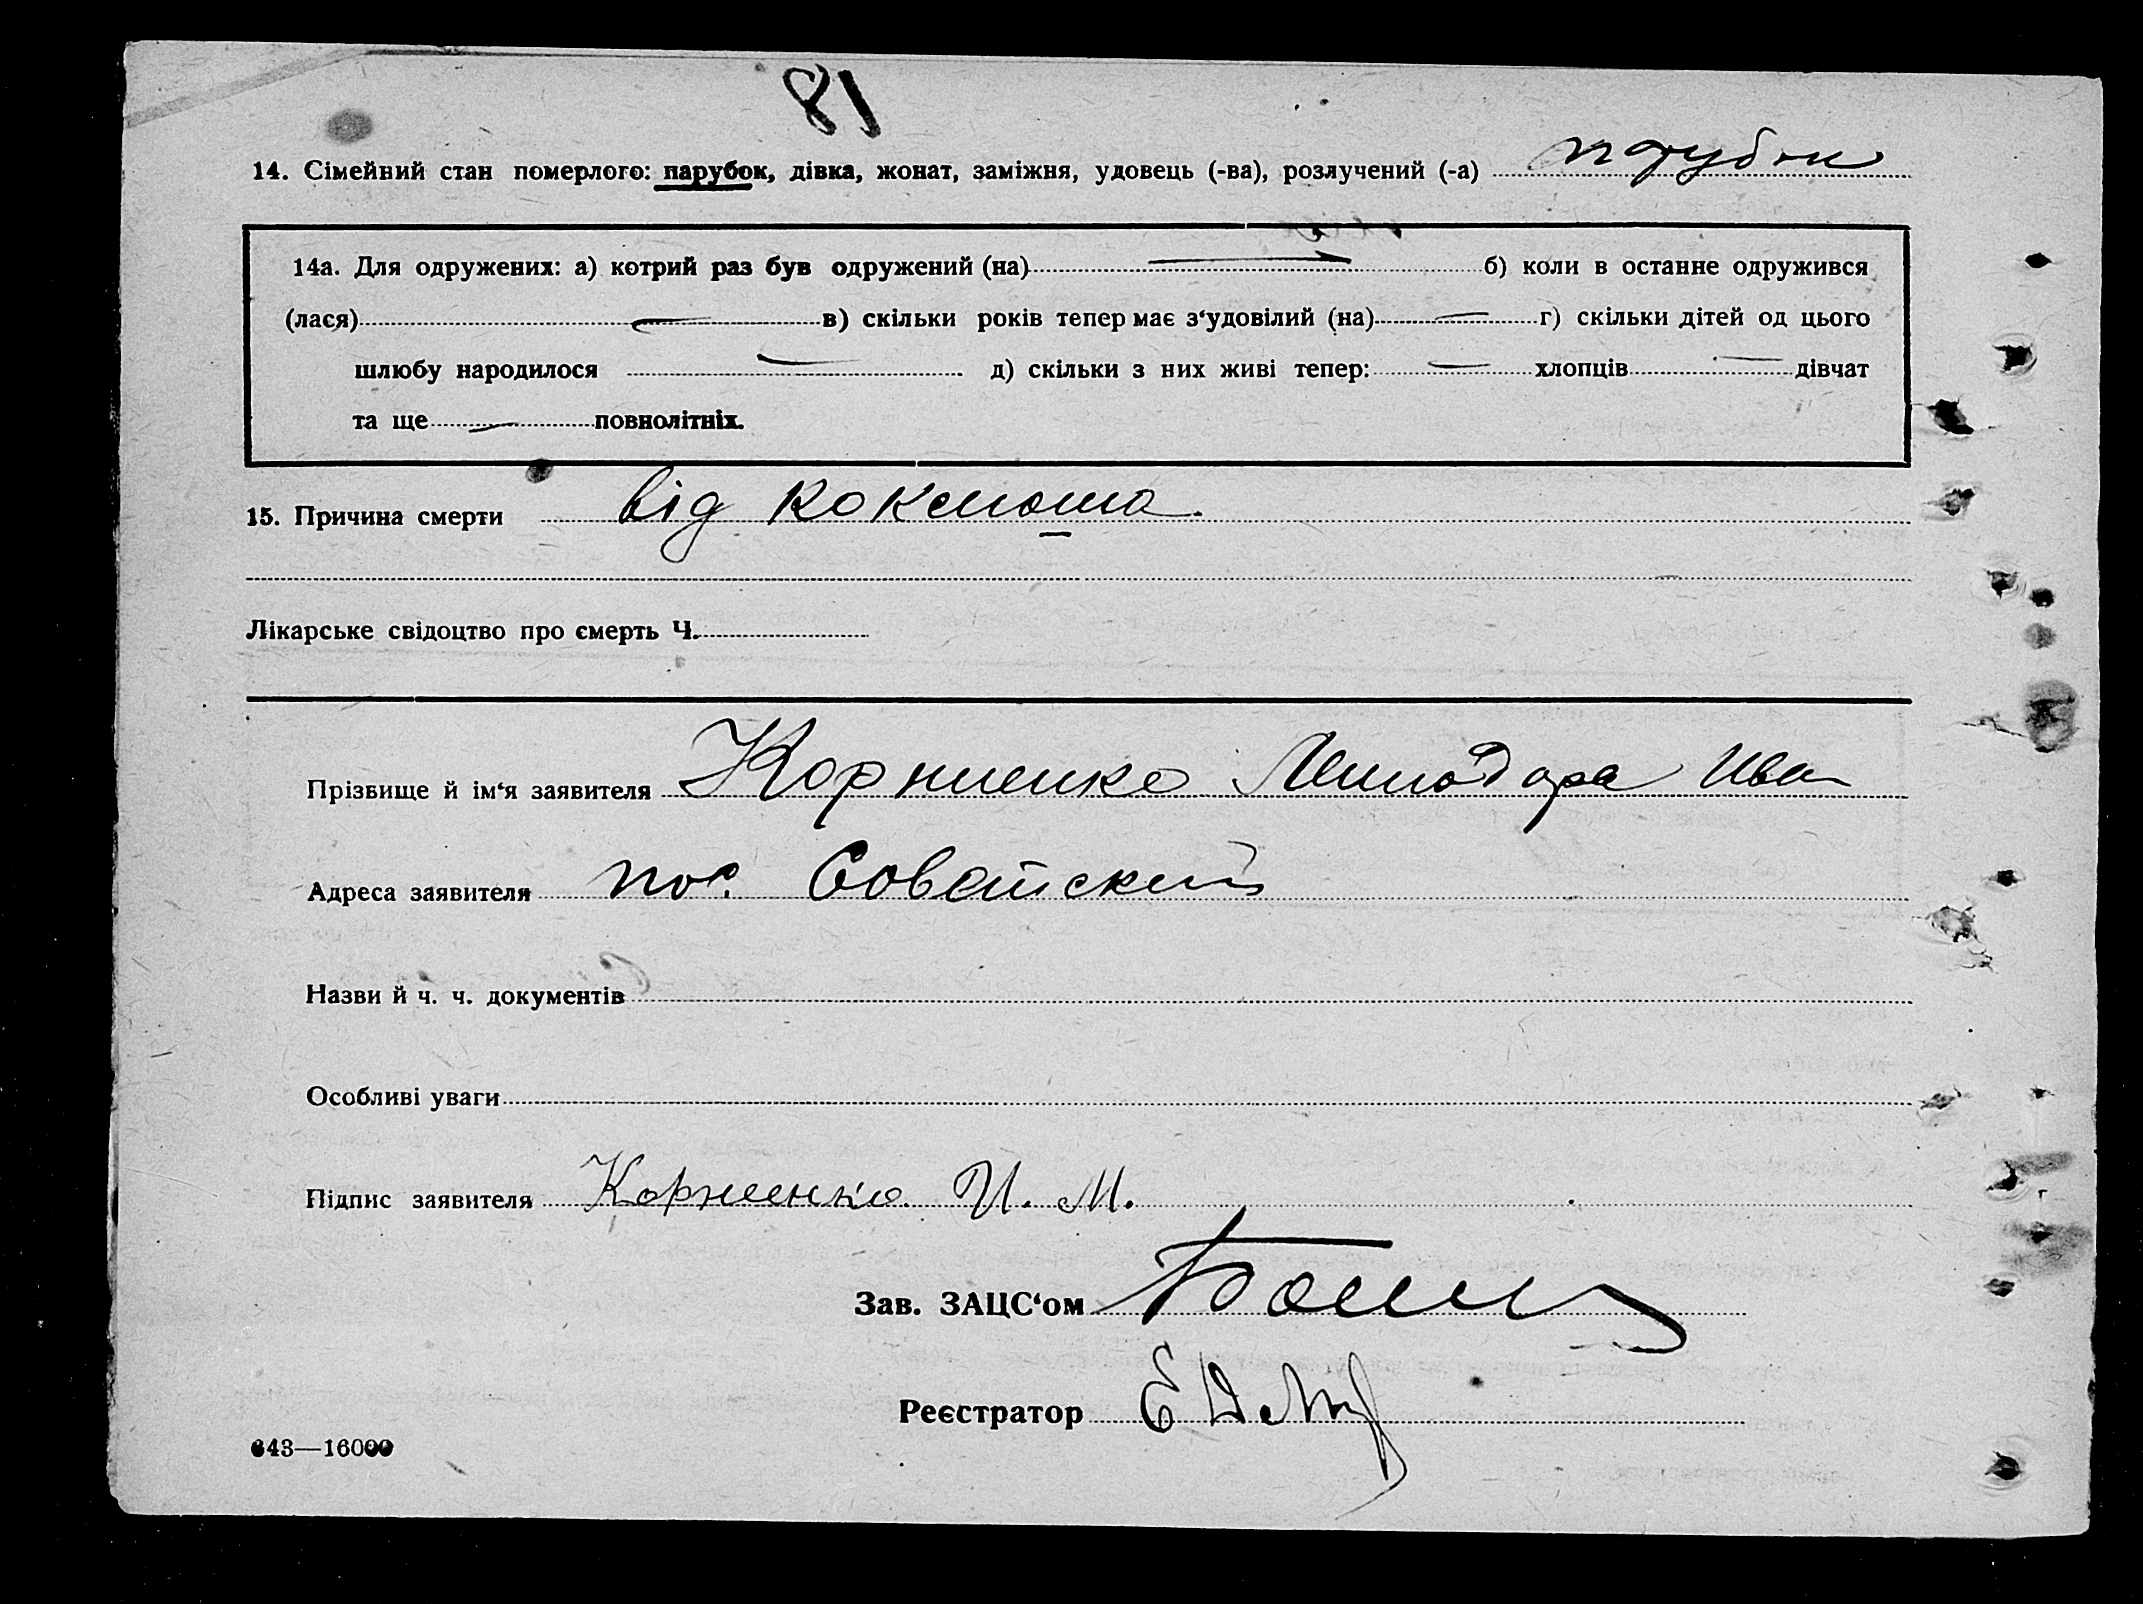 81
14. Сімейний стан померлого: парубок, дівка, жонат, заміжня, удовець (-ва), розлучений (-а) парубок
14а. Для одружених: а) котрий раз був одружений (на) — б) коли в останне одружився
(лася) — в) скільки років тепер має з‘удовілий (на) — г) скільки дітей од цього
шлюбу народилося — д) скільки з них живі тепер: — хлопців — дівчат
та ще — повнолітніх.
15. Причина смерти від коклюша.
Лікарське свідоцтво про смерть Ч.
Прізвище й ім‘я заявителя Корниенко Ива
Адреса заявителя пос. Советский
Назви й ч. ч. документів
Особливі уваги
Підпис заявителя Корниенко И. М.
Зав. ЗАЦС‘ом
Реєстратор
643—16000